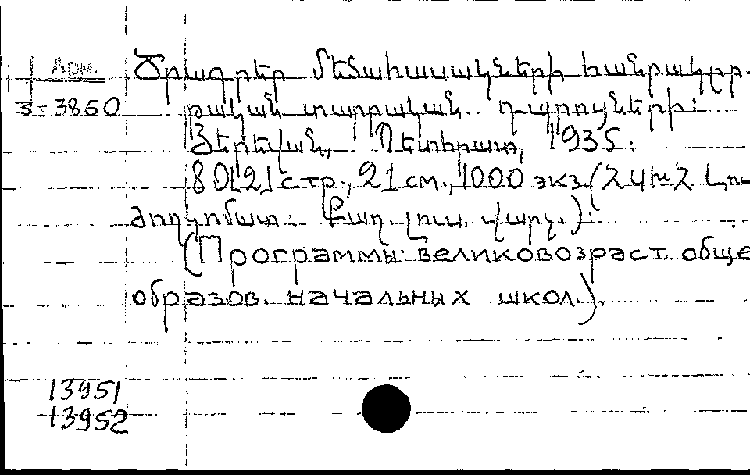 Арм.
3-3860
Ծրագրեր մեծահասակների հանրակըր-
թական տարրական դպրոցների:
Յերեվան, Պետհրատ, 1935.
80[2] стр., 21 см., 1000 экз. (ՀՍԽՀ Լու-
ժողկոմատ. Քաղ. լուս. վարչ.):
(Программы великовозраст. обще
образов. начальных школ.).
13951
13952